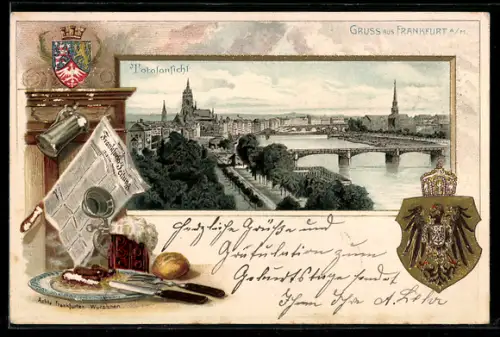 GRUSS aus FRANKFURT a/M.
Totalansicht
Frankfurter Zeitung
Herzliche Grüße und
Gratulation zum
Geburtstage sendet
Ihnen Ihr A.
Echte Frankfurter Würstchen